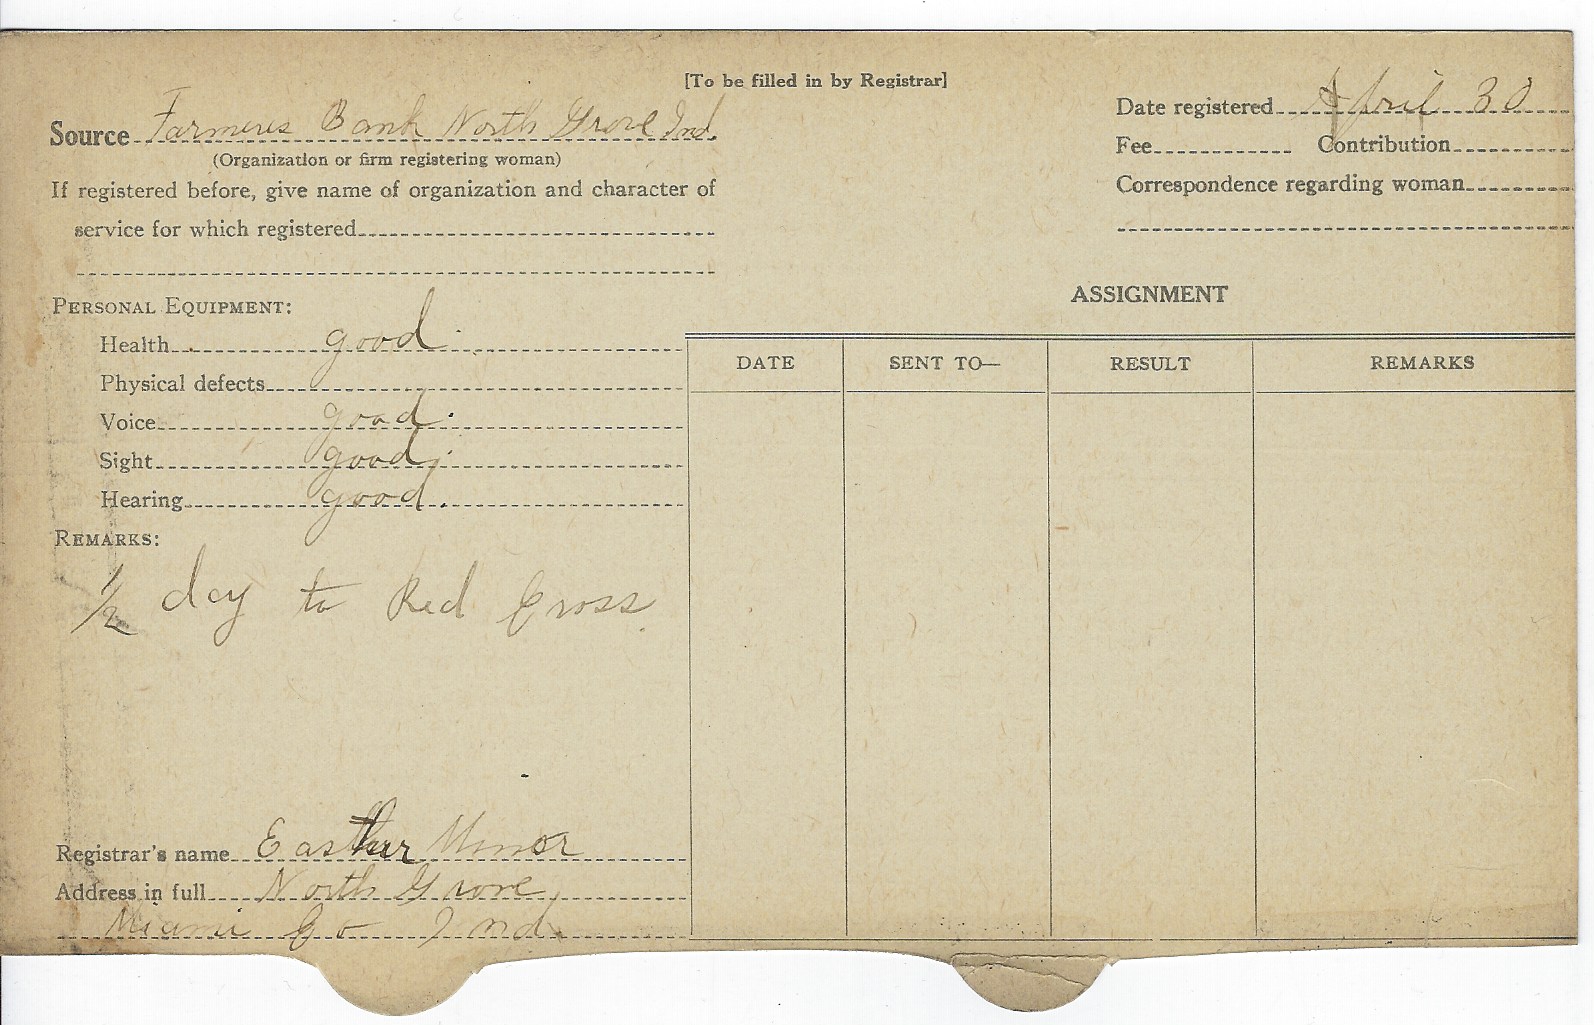 [To be filled in by Registrar]
Source Farmers Bank North Grove Ind.
(Organization or firm registering woman)
If registered before, give name of organization and character of
service for which registered
Date registered April 30
Fee Contribution
Correspondence regarding woman
PERSONAL EQUIPMENT:
Health good.
Physical defects
Voice good.
Sight good.
Hearing good.
REMARKS:
1/2 day to Red Cross.
Registrar's name Easther Minor
Address in full North Grove
Miami Co Ind.
ASSIGNMENT
DATE SENT TO— RESULT REMARKS